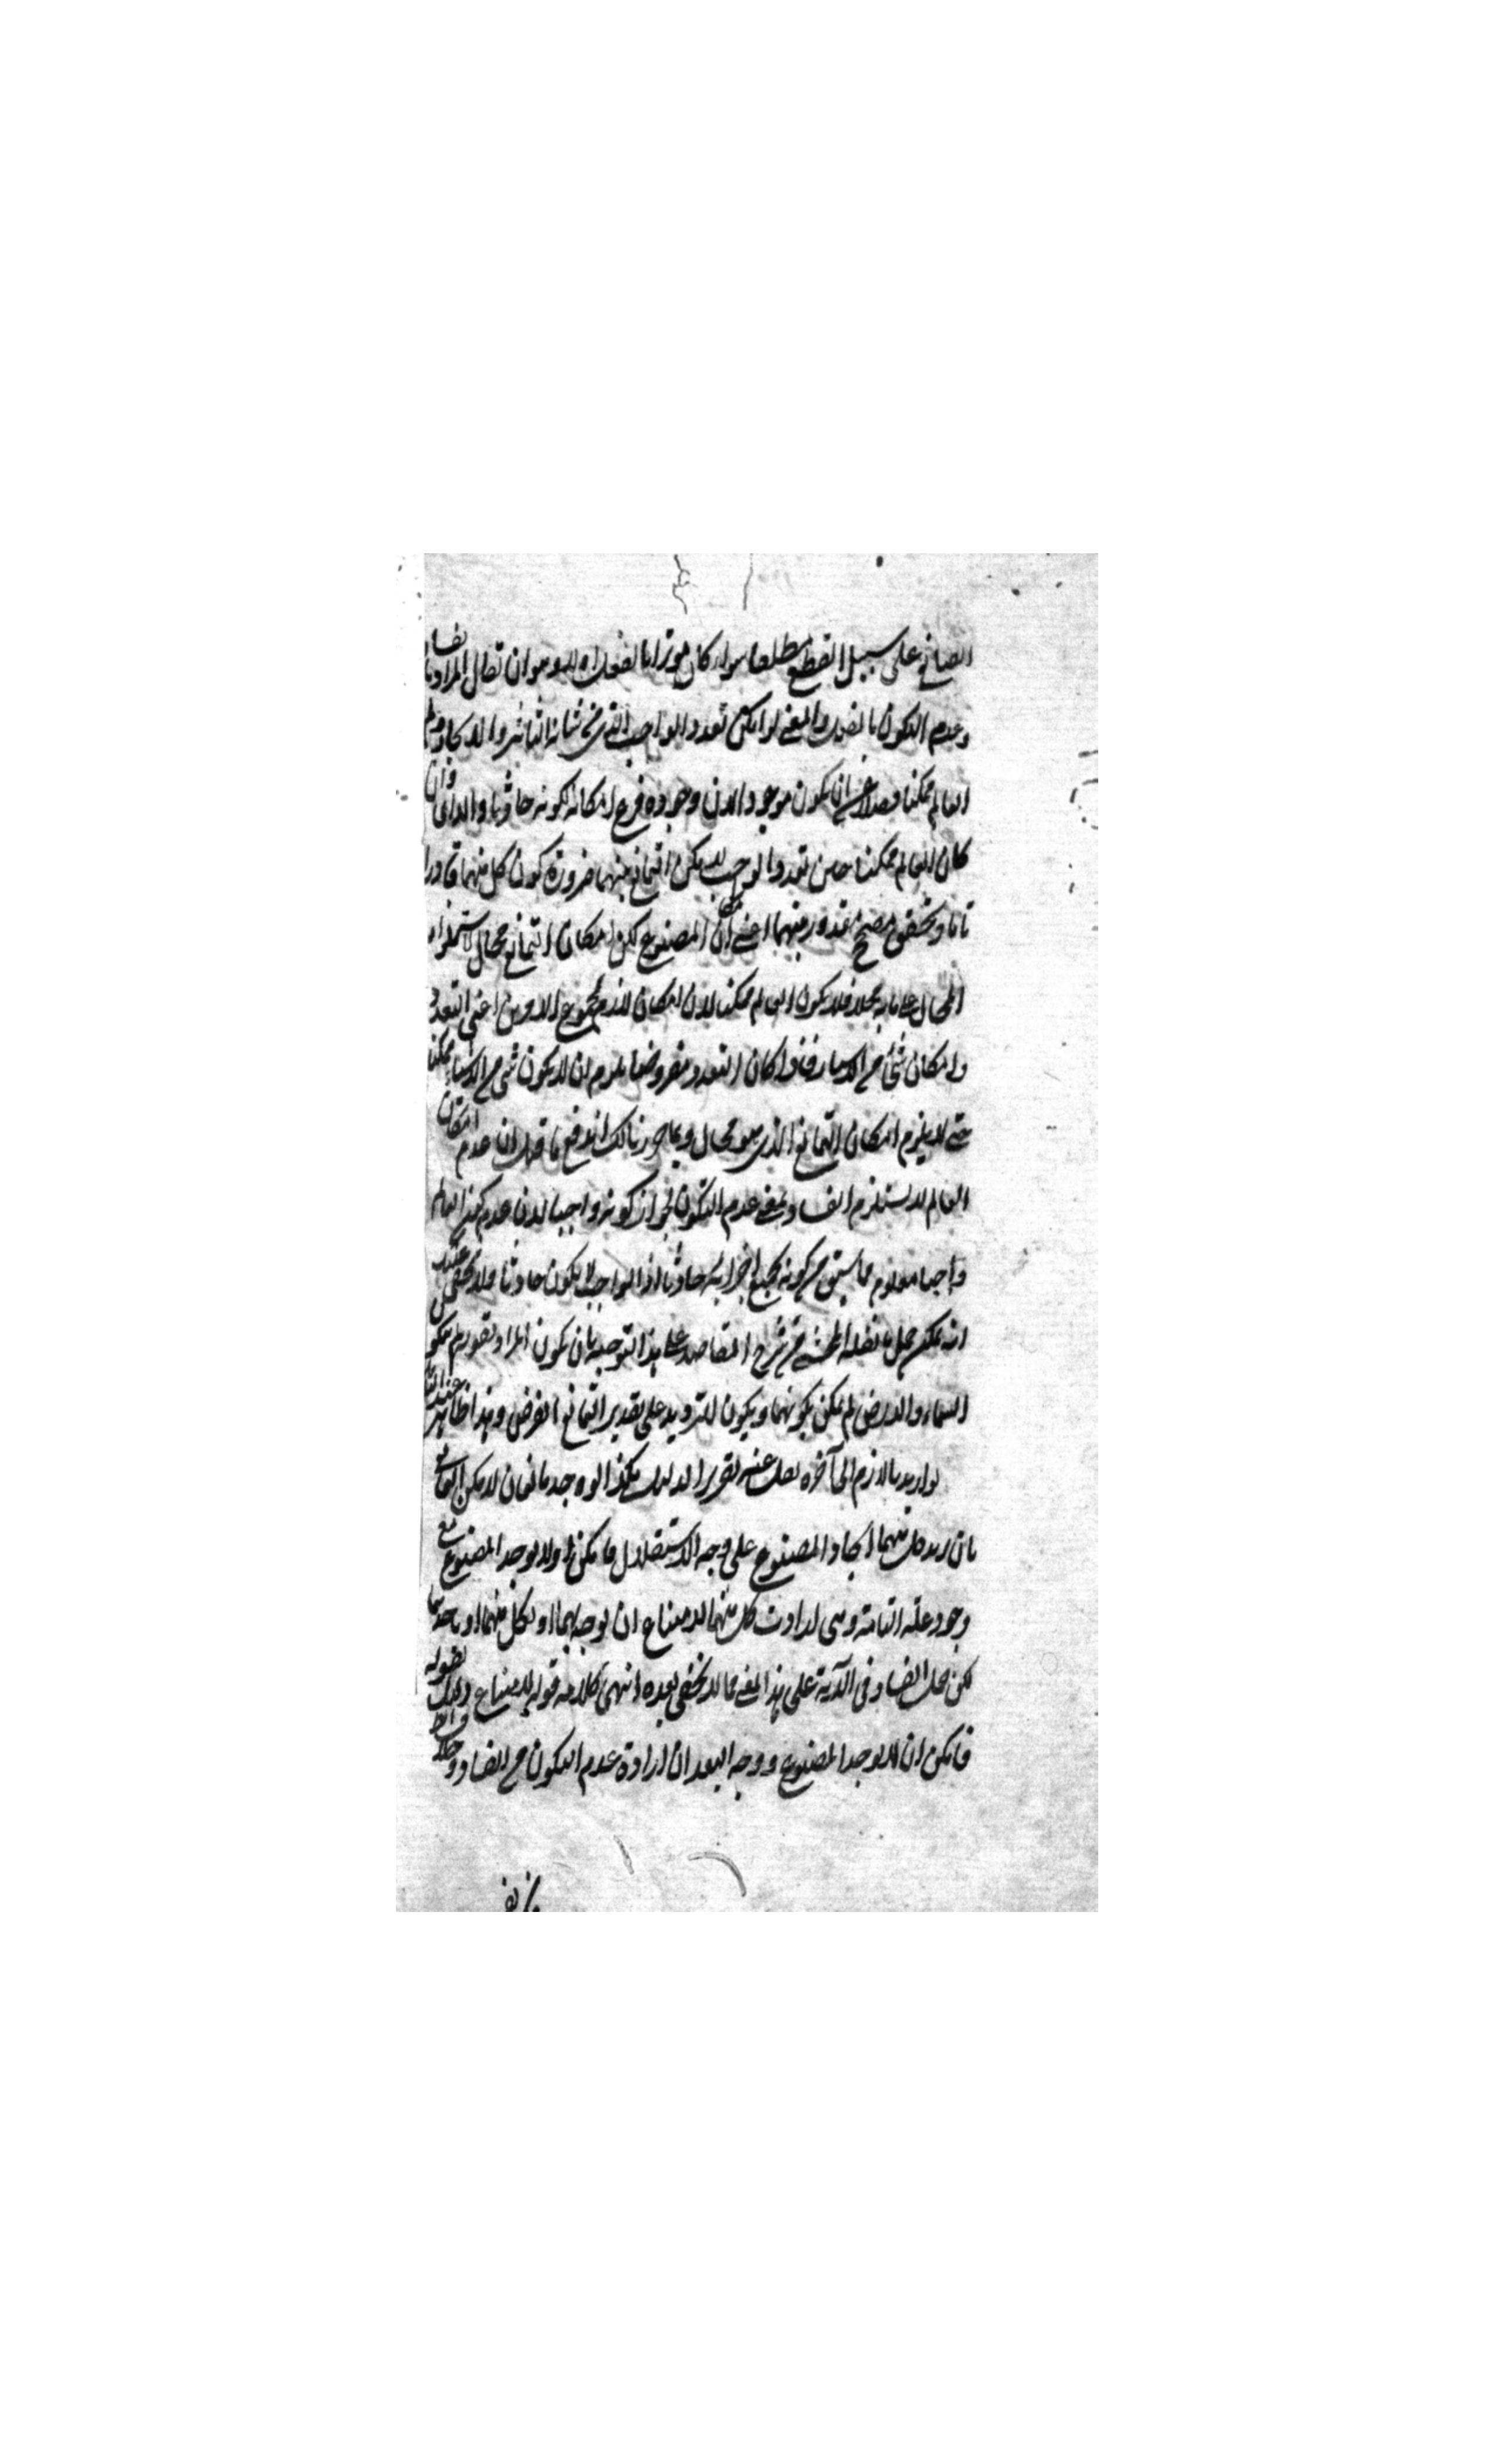 الصانع على سبيل القطع مطلقا سواء كان مؤثرا بالفعل او لا وهو ان تقال المراد بالفساد
وعدم التكون بالفعل والمعنى لو امكن تعدد الواجب الذي من شانه التاثير والايجاد لم
العالم ممكنا فضلا عن ان يكون موجودا لان وجوده فرع امكانه لكونه حادثا والا اي وان
كان العالم ممكنا حين تعدد الواجب لامكن التمانع بينهما ضرورة كون كل منهما قادرا
تاما وتحقق مصحح مقدور منهما اعني امكان المصنوع لكن امكان التمانع محال لاستلزامه
المحال على ما بين فلا يكون العالم ممكنا لان امكان لازم لمجموع الامرين اعني التعدد
وامكان شئ من الاشياء فاذا كان التعدد مفروضا يلزم ان لا يكون شئ من الاشياء ممكنا
حتى لا يلزم امكان التمانع الذي هو محال وبما حررنا لك اندفع ما قيل ان عدم امكان
العالم لا يستلزم الفساد بمعنى عدم التكون لجواز كونه واجبا لان عدم كون العالم
واجبا معلوم مما سبق من كونه بجميع اجزائه حادثا اذ الواجب لا يكون حادثا فلا يخفى عليك
انه يمكن حمل ما نقله المحشي من شرح المقاصد على هذا التوجيه بان يكون المراد بقوله لم يتكون
السماء والارض لم يمكن تكونهما ويكون الترديد على تقدير التمانع الفرضي وهذا ظاهر
لو اريد باللازم الى آخره نقل عنه تقرير الدليل هكذا لو وجد صانعان لامكن التمانع
بان يريد كل منهما ايجاد المصنوع على وجه الاستقلال فامكن ان لا يوجد المصنوع مع
وجود علته التامة وهي ارادت كل منهما لامتناع ان يوجد بهما او بكل منهما او باحدهما
لكن حمل الفساد في الآية على هذا المعنى مما لا يخفى بعده انتهى كلامه قوله لامتناع دليل لقوله
فامكن ان لا يوجد المصنوع ووجه البعد ان ارادة عدم التكون من الفساد